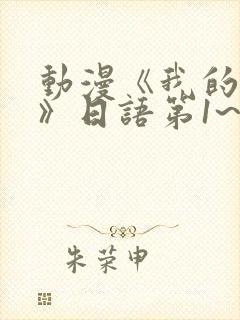 動漫《我的
》日語第1~
朱荣申